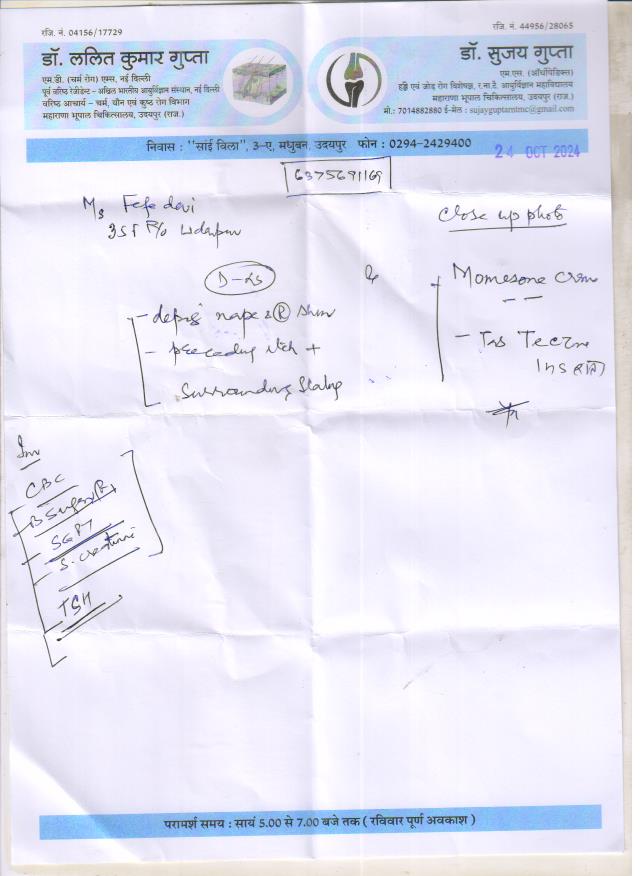 रजि. नं. 04156/17729
डॉ. ललित कुमार गुप्ता
एम.डी. (चर्म रोग) एम्स, नई दिल्ली
पूर्व वरिष्ठ रेजीडेन्ट - अखिल भारतीय आयुर्विज्ञान संस्थान, नई दिल्ली
वरिष्ठ आचार्य - चर्म, यौन एवं कुष्ठ रोग विभाग
महाराणा भूपाल चिकित्सालय, उदयपुर (राज.)
रजि. नं. 44956/28065
डॉ. सुजय गुप्ता
एम.एस. (ऑर्थोपेडिक्स)
हड्डी एवं जोड़ रोग विशेषज्ञ, र.ना.टे. आयुर्विज्ञान महाविद्यालय
महाराणा भूपाल चिकित्सालय, उदयपुर (राज.)
मो.: 7014882880 ई-मेल : sujayguptarntmc@gmail.com
निवास : "सांई विला", 3-ए, मधुबन, उदयपुर फोन : 0294-2429400
24 OCT 2024
6375691169
Ms devi
R/o Udaipur
Close up photo
nape
- preceding itch +
Surrounding
CBC
SGPT
TSH
परामर्श समय : सायं 5.00 से 7.00 बजे तक ( रविवार पूर्ण अवकाश )